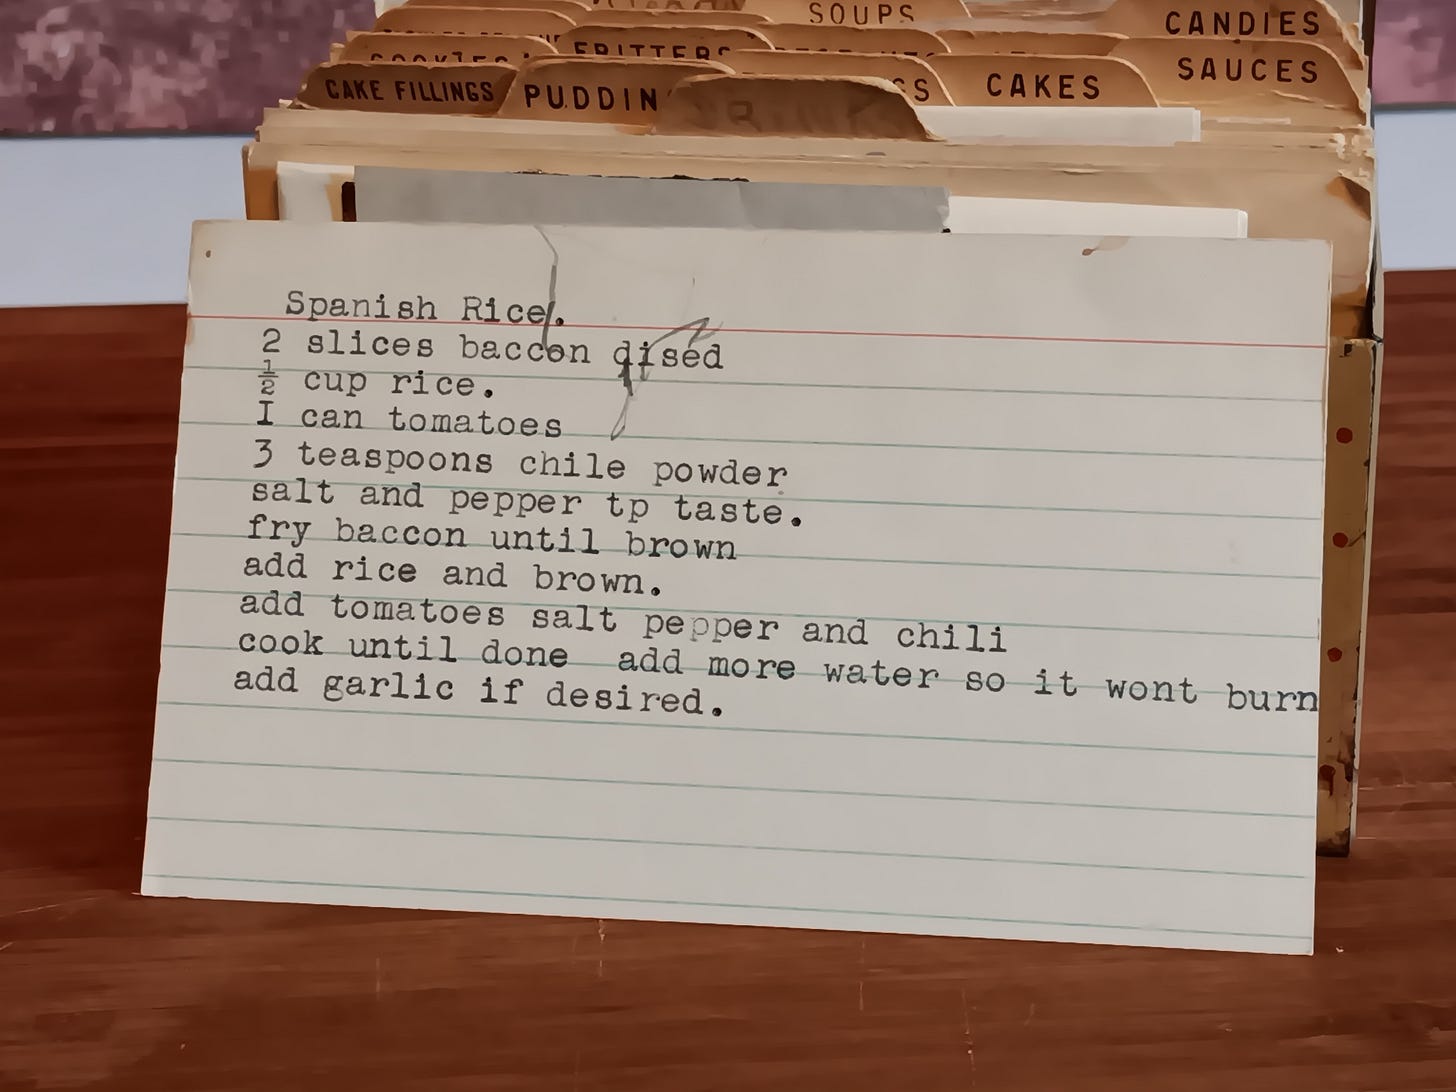 SOUPS
CANDIES
COOKIES
FRITTERS
SAUCES
CAKE FILLINGS
PUDDIN
CAKES
Spanish Rice.
2 slices baccon dised
½ cup rice.
I can tomatoes
3 teaspoons chile powder
salt and pepper tp taste.
fry baccon until brown
add rice and brown.
add tomatoes salt pepper and chili
cook until done add more water so it wont burn
add garlic if desired.